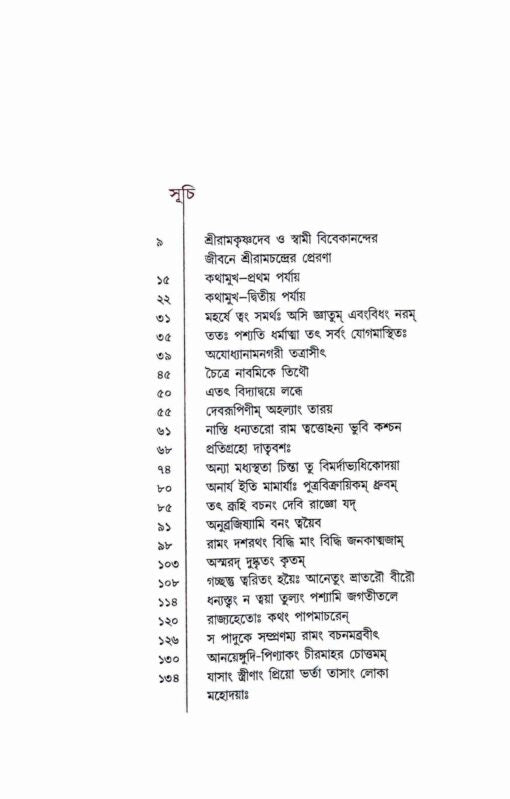 সূচি
৯ শ্রীরামকৃষ্ণদেব ও স্বামী বিবেকানন্দের
জীবনে শ্রীরামচন্দ্রের প্রেরণা
১৫ কথামুখ–প্রথম পর্যায়
২২ কথামুখ–দ্বিতীয় পর্যায়
৩১ মহর্ষে ত্বং সমর্থঃ অসি জ্ঞাতুম্ এবংবিধং নরম্
৩৫ ততঃ পশ্যতি ধর্মাত্মা তৎ সর্বং যোগমাস্থিতঃ
৩৯ অযোধ্যানামনগরী তত্রাসীৎ
৪৫ চৈত্রে নাবমিকে তিথৌ
৫০ এতৎ বিদ্যাদ্বয়ে লব্ধে
৫৫ দেবরূপিণীম্ অহল্যাং তারয়
৬১ নাস্তি ধন্যতরো রাম ত্বত্তোঽন্য ভুবি কশ্চন
৬৮ প্রতিগ্রহো দাতৃবশঃ
৭৪ অন্যা মধ্যস্থতা চিন্তা তু বিমর্দাভ্যধিকোদয়া
৮০ অনার্য ইতি মামার্যাঃ পুত্রবিক্রায়িকম্ ধ্রুবম্
৮৫ তৎ ব্রূহি বচনং দেবি রাজ্ঞো যদ্
৯১ অনুব্রজিষ্যামি বনং ত্বয়ৈব
৯৮ রামং দশরথং বিদ্ধি মাং বিদ্ধি জনকাত্মজাম্
১০৩ অস্মরদ্ দুষ্কৃতং কৃতম্
১০৮ গচ্ছন্তু ত্বরিতং হয়ৈঃ আনেতুং ভ্রাতরৌ বীরৌ
১১৪ ধন্যস্ত্বং ন ত্বয়া তুল্যং পশ্যামি জগতীতলে
১২০ রাজ্যহেতোঃ কথং পাপমাচরেন্
১২৬ স পাদুকে সম্প্রণম্য রামং বচনমব্রবীৎ
১৩০ আনয়েঙ্গুদি-পিণ্যাকং চীরমাহর চোত্তমম্
১৩৪ যাসাং স্ত্রীণাং প্রিয়ো ভর্তা তাসাং লোকা
মহোদয়াঃ